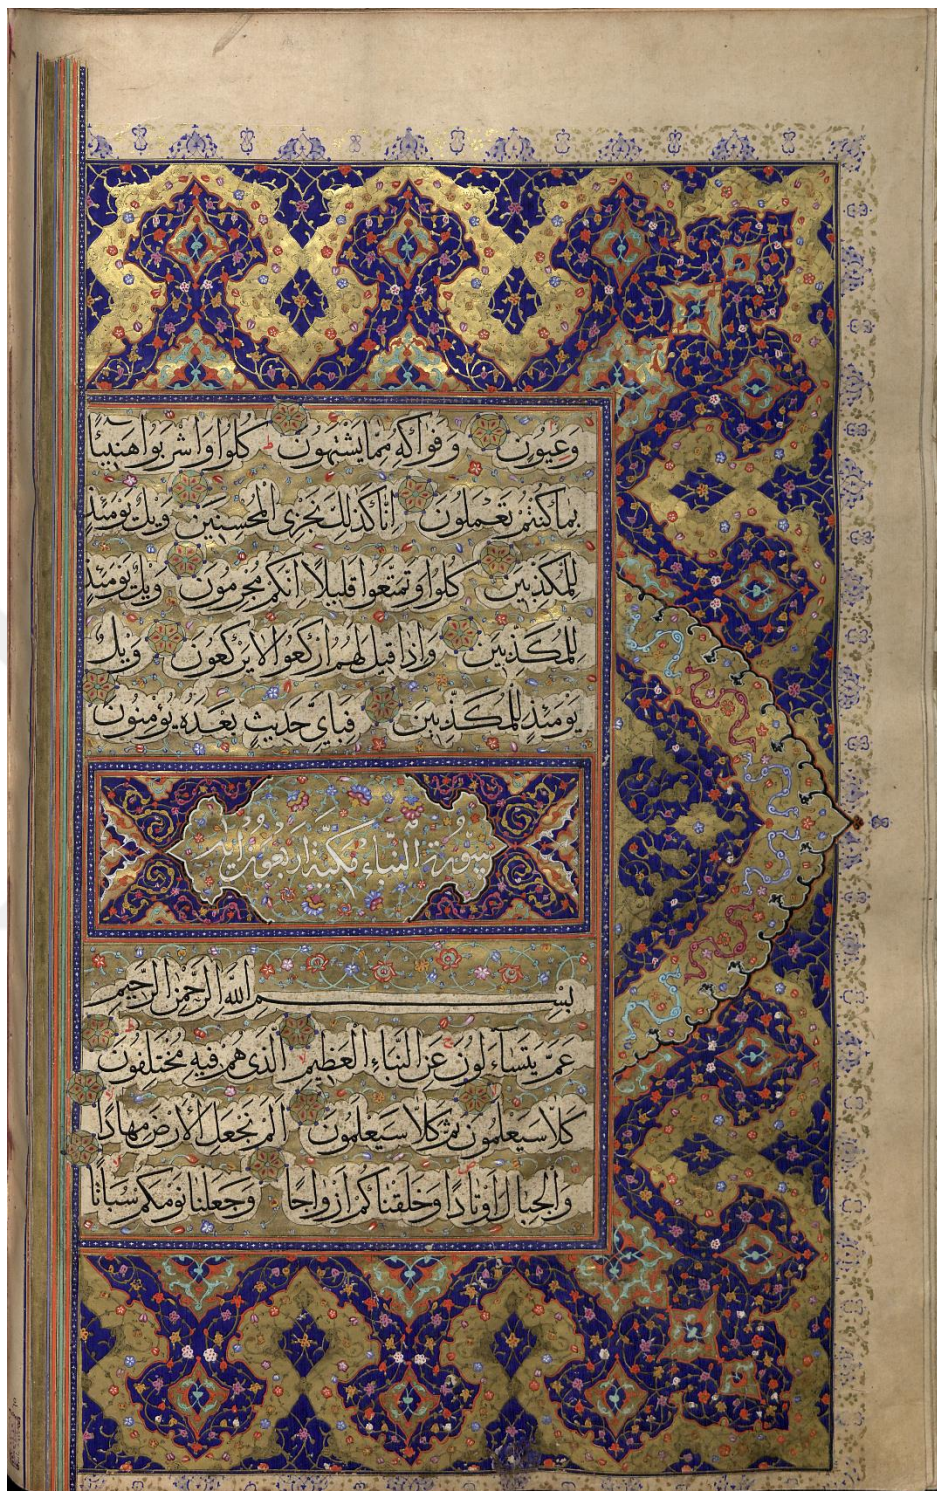 وَعُيُونٍ وَفَوَاكِهَ مِمَّا يَشْتَهُونَ كُلُوا وَاشْرَبُوا هَنِيئًا
بِمَا كُنْتُمْ تَعْمَلُونَ إِنَّا كَذَلِكَ نَجْزِي الْمُحْسِنِينَ وَيْلٌ يَوْمَئِذٍ
لِلْمُكَذِّبِينَ كُلُوا وَتَمَتَّعُوا قَلِيلًا إِنَّكُمْ مُجْرِمُونَ وَيْلٌ يَوْمَئِذٍ
لِلْمُكَذِّبِينَ وَإِذَا قِيلَ لَهُمُ ارْكَعُوا لَا يَرْكَعُونَ وَيْلٌ
يَوْمَئِذٍ لِلْمُكَذِّبِينَ فَبِأَيِّ حَدِيثٍ بَعْدَهُ يُؤْمِنُونَ
سُورَةُ النَّبَاءِ مَكِّيَّةٌ أَرْبَعُونَ آيَة
بِسْمِ اللَّهِ الرَّحْمَنِ الرَّحِيمِ
عَمَّ يَتَسَاءَلُونَ عَنِ النَّبَاءِ الْعَظِيمِ الَّذِي هُمْ فِيهِ مُخْتَلِفُونَ
كَلَّا سَيَعْلَمُونَ ثُمَّ كَلَّا سَيَعْلَمُونَ أَلَمْ نَجْعَلِ الْأَرْضَ مِهَادًا
وَالْجِبَالَ أَوْتَادًا وَخَلَقْنَاكُمْ أَزْوَاجًا وَجَعَلْنَا نَوْمَكُمْ سُبَاتًا